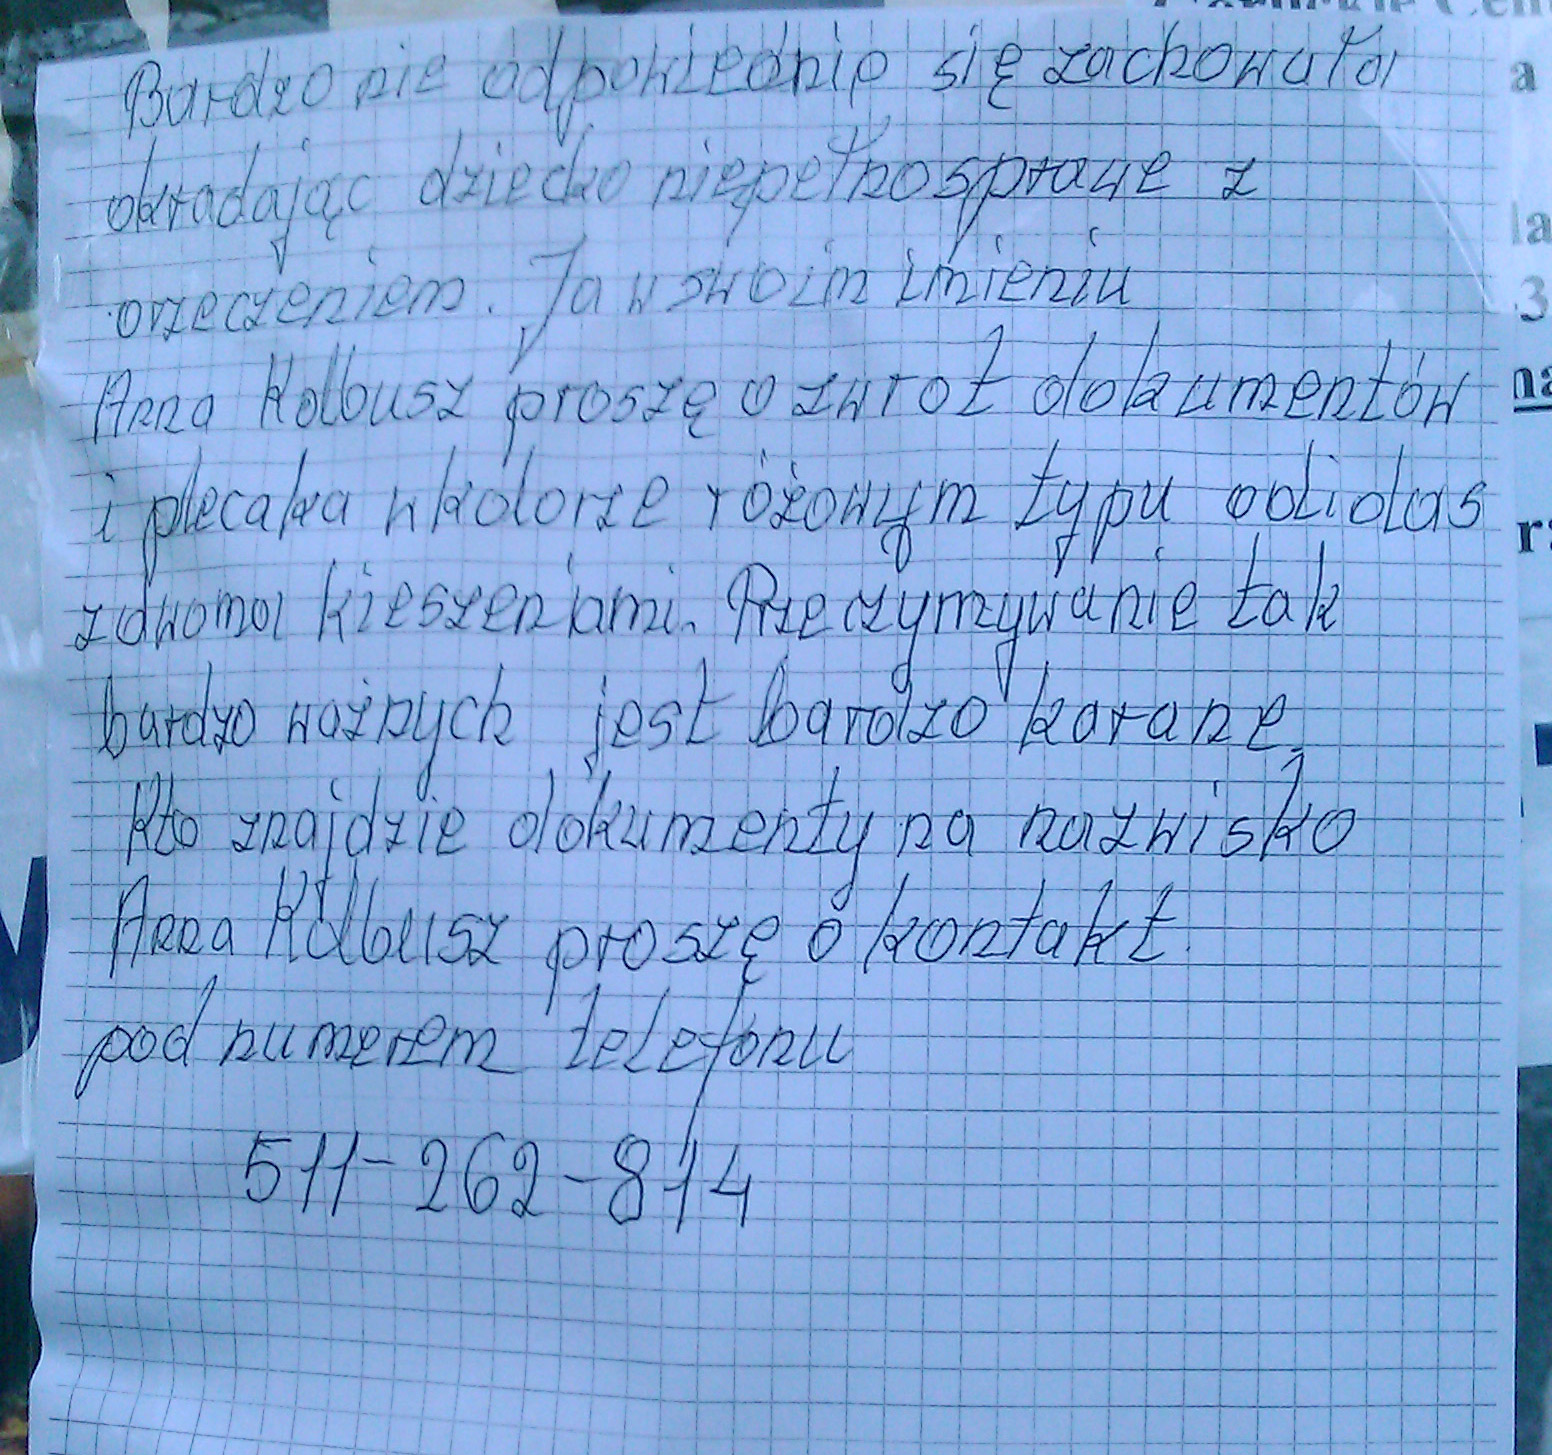 Bardzo nie odpowiednie się zachowała
okradając dziecko niepełnosprawe z
orzeczeniem. Ja w swoim imieniu
Anna Kolbusz proszę o zwrot dokumentów
i plecaka w kolorze różowym typu adidas
z dwoma kieszeniami. Przeczymywanie tak
bardzo ważnych jest bardzo karane,
Kto znajdzie dokumenty na nazwisko
Anna Kolbusz proszę o kontakt.
pod numerem telefonu
511-262-814
a
la
3
na